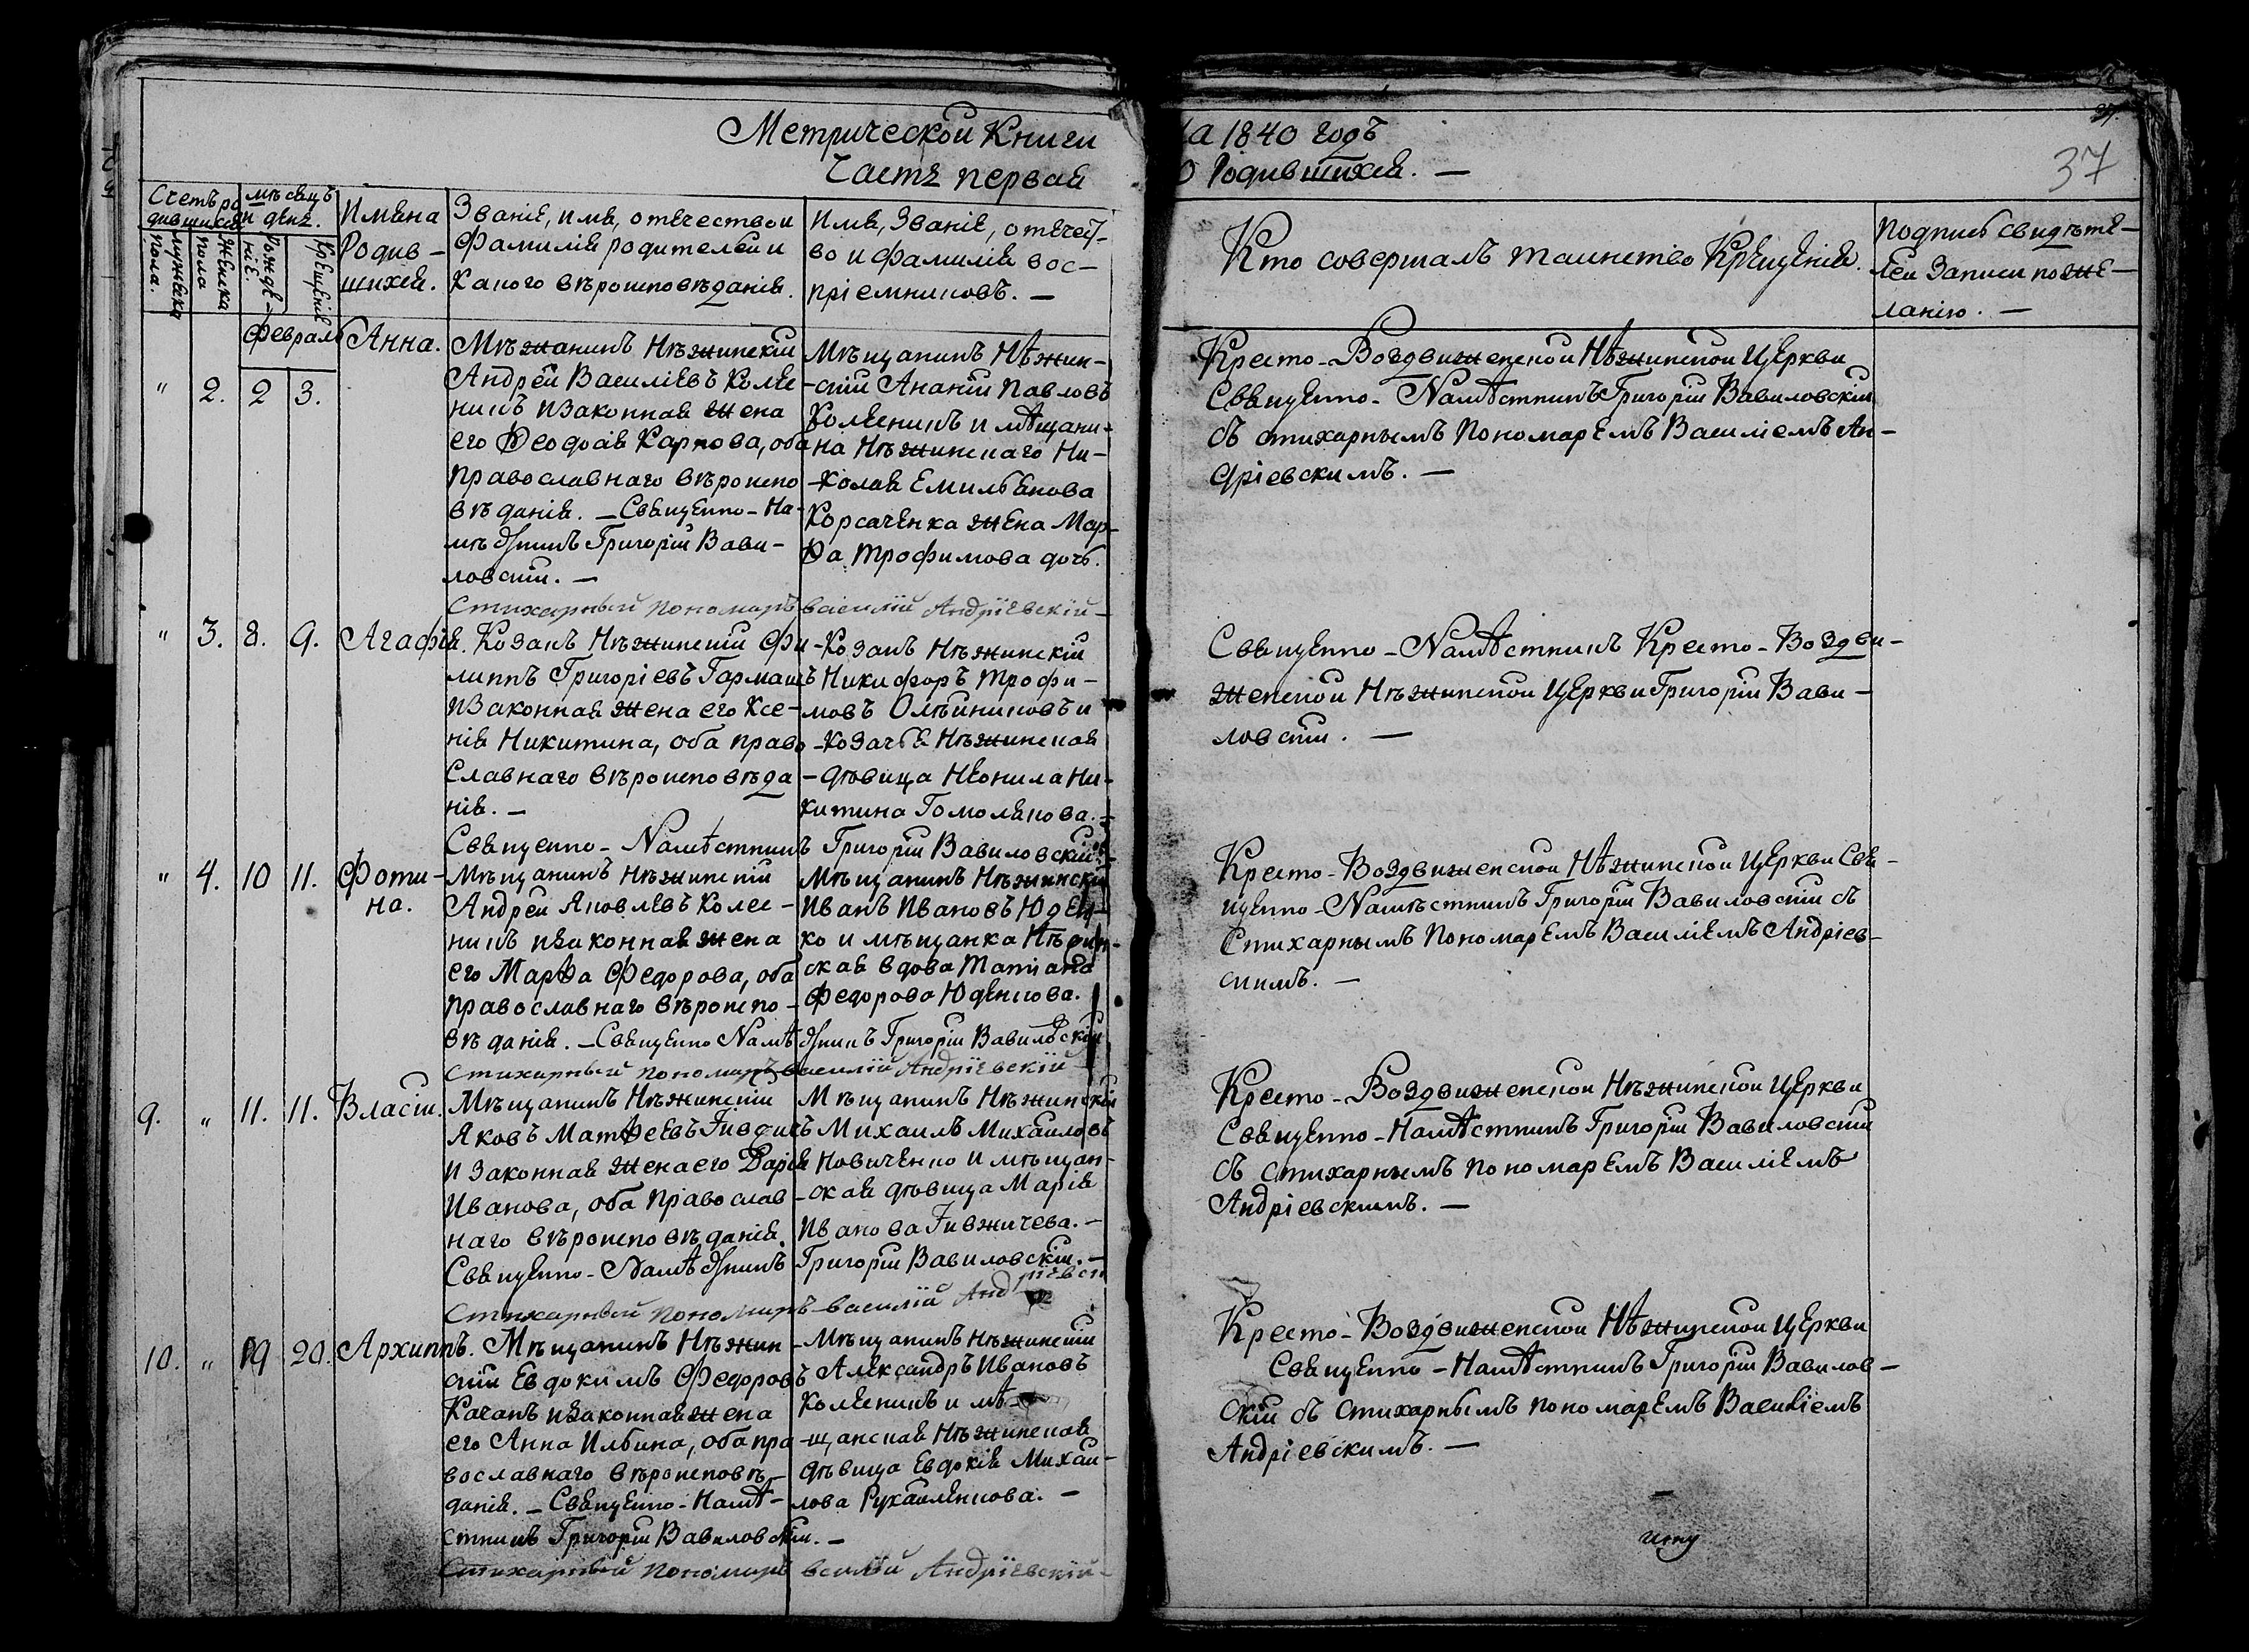 Метрической Книги
Часть первая
на 1840 годъ
О Родившихся. —
37
Счетъ ро
дившихся
мужеска
пола.
женска
пола
мѣсяцъ
и день.
Рожде-
нія.
Крещенія
Имена
Родив-
шихся.
Званіе, имя, отечество и
фамилія родителей и
какого вѣроисповѣданія.
Имя, Званіе, отечест-
во и фамилія вос-
пріемниковъ. —
Кто совершалъ таинство Крещенія.
Подпись свидѣте-
лей Записи по же-
ланію. —
Февраль
" 2. 2 3.
Анна.
Мѣжанинъ Нѣжинскій
Андрей Василіевъ Коле
никъ и законная жена
его Ѳеодосія Карпова, оба
православнаго вѣроиспо
вѣданія. — Священно-На-
мѣстникъ Григорій Вави-
ловскій. —
Стихарный пономарь Василій Андріевскій —
Мѣщанинъ Нѣжин-
-скій Ананій Павловъ
Колѣсникъ и мѣщани-
на Нѣжинскаго Ни-
-колая Емильянова
Корсаченка жена Мар-
ѳа Трофимова дочь.
Кресто-Воздвиженской Нѣжинской Церкви
Священно-Намѣстникъ Григорій Вавиловскій
съ стихарнымъ Пономаремъ Василіемъ Ан-
дріевскимъ. —
" 3. 8. 9.
Агафія.
Козакъ Нѣжинскій Фи
липпъ Григоріевъ Гармашъ
и Законная жена его Ксе-
нія Никитина, оба право
славнаго вѣроисповѣда
нія. —
Священно-Намѣстникъ Григорій Вавиловскій. —
-Козакъ Нѣжинскій
Никифоръ Трофи-
мовъ Олѣйниковъ и
-Козачья Нѣжинская
-дѣвица Неонила Ни-
китина Гомолякова. —
Священно-Намѣстникъ Кресто-Воздви-
женской Нѣжинской Церкви Григорій Вави-
ловскій. —
" 4. 10 11.
Фоти-
на.
Мѣщанинъ Нѣжинскій
Андрей Яковлевъ Колес-
никъ и законная жена
его Марѳа Федорова, оба
православнаго вѣроиспо-
вѣданія. — Священно Намѣстникъ Григорій Вавиловскій
Стихарный пономарь Василій Андріевскій
Мѣщанинъ Нѣжинскій
Иванъ Ивановъ Юден-
ко и мѣщанка Нѣжин-
ская вдова Татіана
Федорова Юденкова.
Кресто-Воздвиженской Нѣжинской Церкви Свя-
щенно-Намѣстникъ Григорій Вавиловскій съ
Стихарнымъ Пономаремъ Василіемъ Андріев-
скимъ. —
9. " 11. 11.
Власій.
Мѣщанинъ Нѣжинскій
Яковъ Матѳеевъ
и Законная жена его Дарія
Иванова, оба Православ-
наго вѣроисповѣданія.
Священно-Намѣстникъ Григорій Вавиловскій. —
Стихарный Пономарь Василій Андріевскі
Мѣщанинъ Нѣжинскій
Михаилъ Михаиловъ
Новиченко и мѣщан-
ская дѣвица Марія
Иванова
Кресто-Воздвиженской Нѣжинской Церкви
Священно-Намѣстникъ Григорій Вавиловскій
съ стихарнымъ пономаремъ Василіемъ
Андріевскимъ. —
10. " 19 20.
Архиппъ.
Мѣщанинъ Нѣжин-
скій Евдокимъ Федоровъ
Качанъ и законная жена
его Анна Ильина, оба пра
вославнаго вѣроисповѣ-
данія. — Священно-Намѣ-
стникъ Григорій Вавиловскій. —
Стихарный пономарь Василій Андріевскій —
-Мѣщанинъ Нѣжинскій
Александръ Ивановъ
Колѣсникъ и мѣ
-щанская Нѣжинская
дѣвица Евдокія Михаи-
лова Рухайленкова. —
Кресто-Воздвиженской Нѣжинской Церкви
Священно-Намѣстникъ Григорій Вавилов-
скій съ стихарнымъ пономаремъ Василіемъ
Андріевскимъ. —